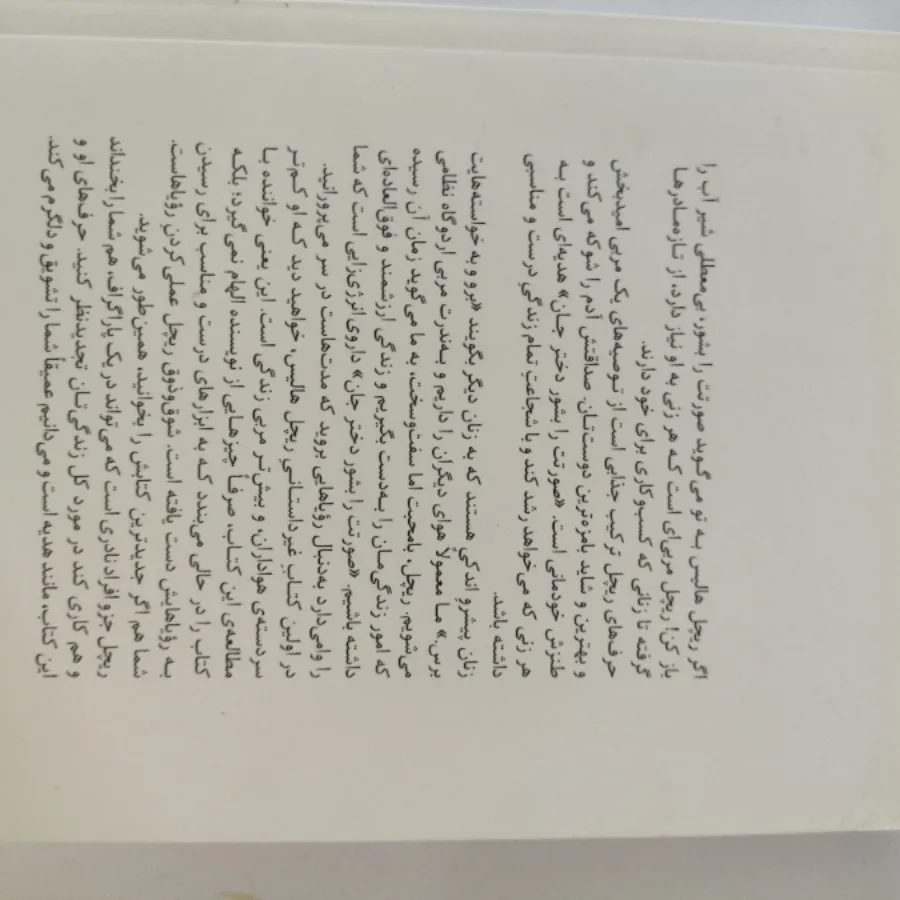 اگر ریچل هالیس به تو می‌گوید صورتت را بشور، بی‌معطلی شیر آب را
باز کن! ریچل مربی‌ای است که هر زنی به او نیاز دارد، از تازه‌مادرها
گرفته تا زنانی که کسب‌وکاری برای خود دارند.
حرف‌های ریچل ترکیب جذابی است از توصیه‌های یک مربی امیدبخش
و بهترین و شاید بامزه‌ترین دوست‌تان. صداقتش آدم را شوکه می‌کند و
طنزش خودمانی است. «صورتت را بشور دختر جان» هدیه‌ای است به
هر زنی که می‌خواهد رشد کند و با شجاعتِ تمام زندگی درست و مناسبی
داشته باشد.
زنان پیشروِ اندکی هستند که به زنان دیگر بگویند «برو به خواسته‌هایت
برس.» ما معمولاً هوای دیگران را داریم و به‌ندرت مربی اردوگاه نظامی
می‌شویم. ریچل، بامحبت اما سفت‌وسخت، به ما می‌گوید زمان آن رسیده
که امور زندگی‌مان را به‌دست بگیریم و زندگی ارزشمند و فوق‌العاده‌ای
داشته باشیم. «صورتت را بشور دختر جان» داروی انرژی‌زایی است که شما
را وامی‌دارد به‌دنبال رؤیاهایی بروید که مدت‌هاست در سر می‌پرورانید.
در اولین کتابِ غیرداستانیِ ریچل هالیس، خواهید دید که او کم‌تر
سردسته‌ی هواداران، و بیش‌تر مربی زندگی است. این یعنی خواننده با
مطالعه‌ی این کتاب، صرفاً چیزهایی از نویسنده الهام نمی‌گیرد؛ بلکه
کتاب را در حالی می‌بندد که به ابزارهای درست و مناسب برای رسیدن
به رؤیاهایش دست یافته است. شوق‌وذوق ریچل عملی‌کردنِ رؤیاهاست.
شما هم اگر جدیدترین کتابش را بخوانید، همین‌طور می‌شوید.
ریچل جزو افراد نادری است که می‌تواند در یک پاراگراف، هم شما را بخنداند
و هم کاری کند در مورد کل زندگی‌تان تجدیدنظر کنید. حرف‌های او و
این کتاب، مانند هدیه است و می‌دانیم عمیقاً شما را تشویق و دلگرم می‌کند.